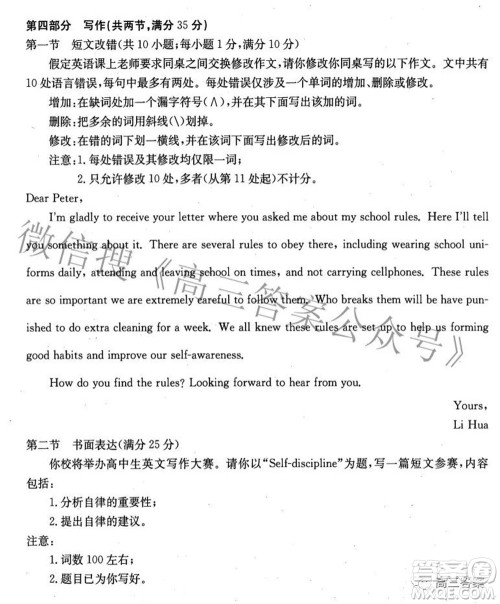 第四部分 写作(共两节,满分 35 分)
第一节 短文改错(共 10 小题;每小题 1 分,满分 10 分)
假定英语课上老师要求同桌之间交换修改作文,请你修改你同桌写的以下作文。文中共有
10 处语言错误,每句中最多有两处。每处错误仅涉及一个单词的增加、删除或修改。
增加:在缺词处加一个漏字符号(∧),并在其下面写出该加的词。
删除:把多余的词用斜线(\)划掉。
修改:在错的词下划一横线,并在该词下面写出修改后的词。
注意:1.每处错误及其修改均仅限一词;
2.只允许修改 10 处,多者(从第 11 处起)不计分。
Dear Peter,
I'm gladly to receive your letter where you asked me about my school rules. Here I'll tell
you something about it. There are several rules to obey there, including wearing school uni-
forms daily, attending and leaving school on times, and not carrying cellphones. These rules
are so important we are extremely careful to follow them. Who breaks them will have pun-
ished to do extra cleaning for a week. We all knew these rules are set up to help us forming
good habits and improve our self-awareness.
How do you find the rules? Looking forward to hear from you.
Yours,
Li Hua
第二节 书面表达(满分 25 分)
你校将举办高中生英文写作大赛。请你以“Self-discipline”为题,写一篇短文参赛,内容
包括:
1.分析自律的重要性;
2.提出自律的建议。
注意:
1.词数 100 左右;
2.题目已为你写好。
微信搜《高三答案公众号》
高三答案